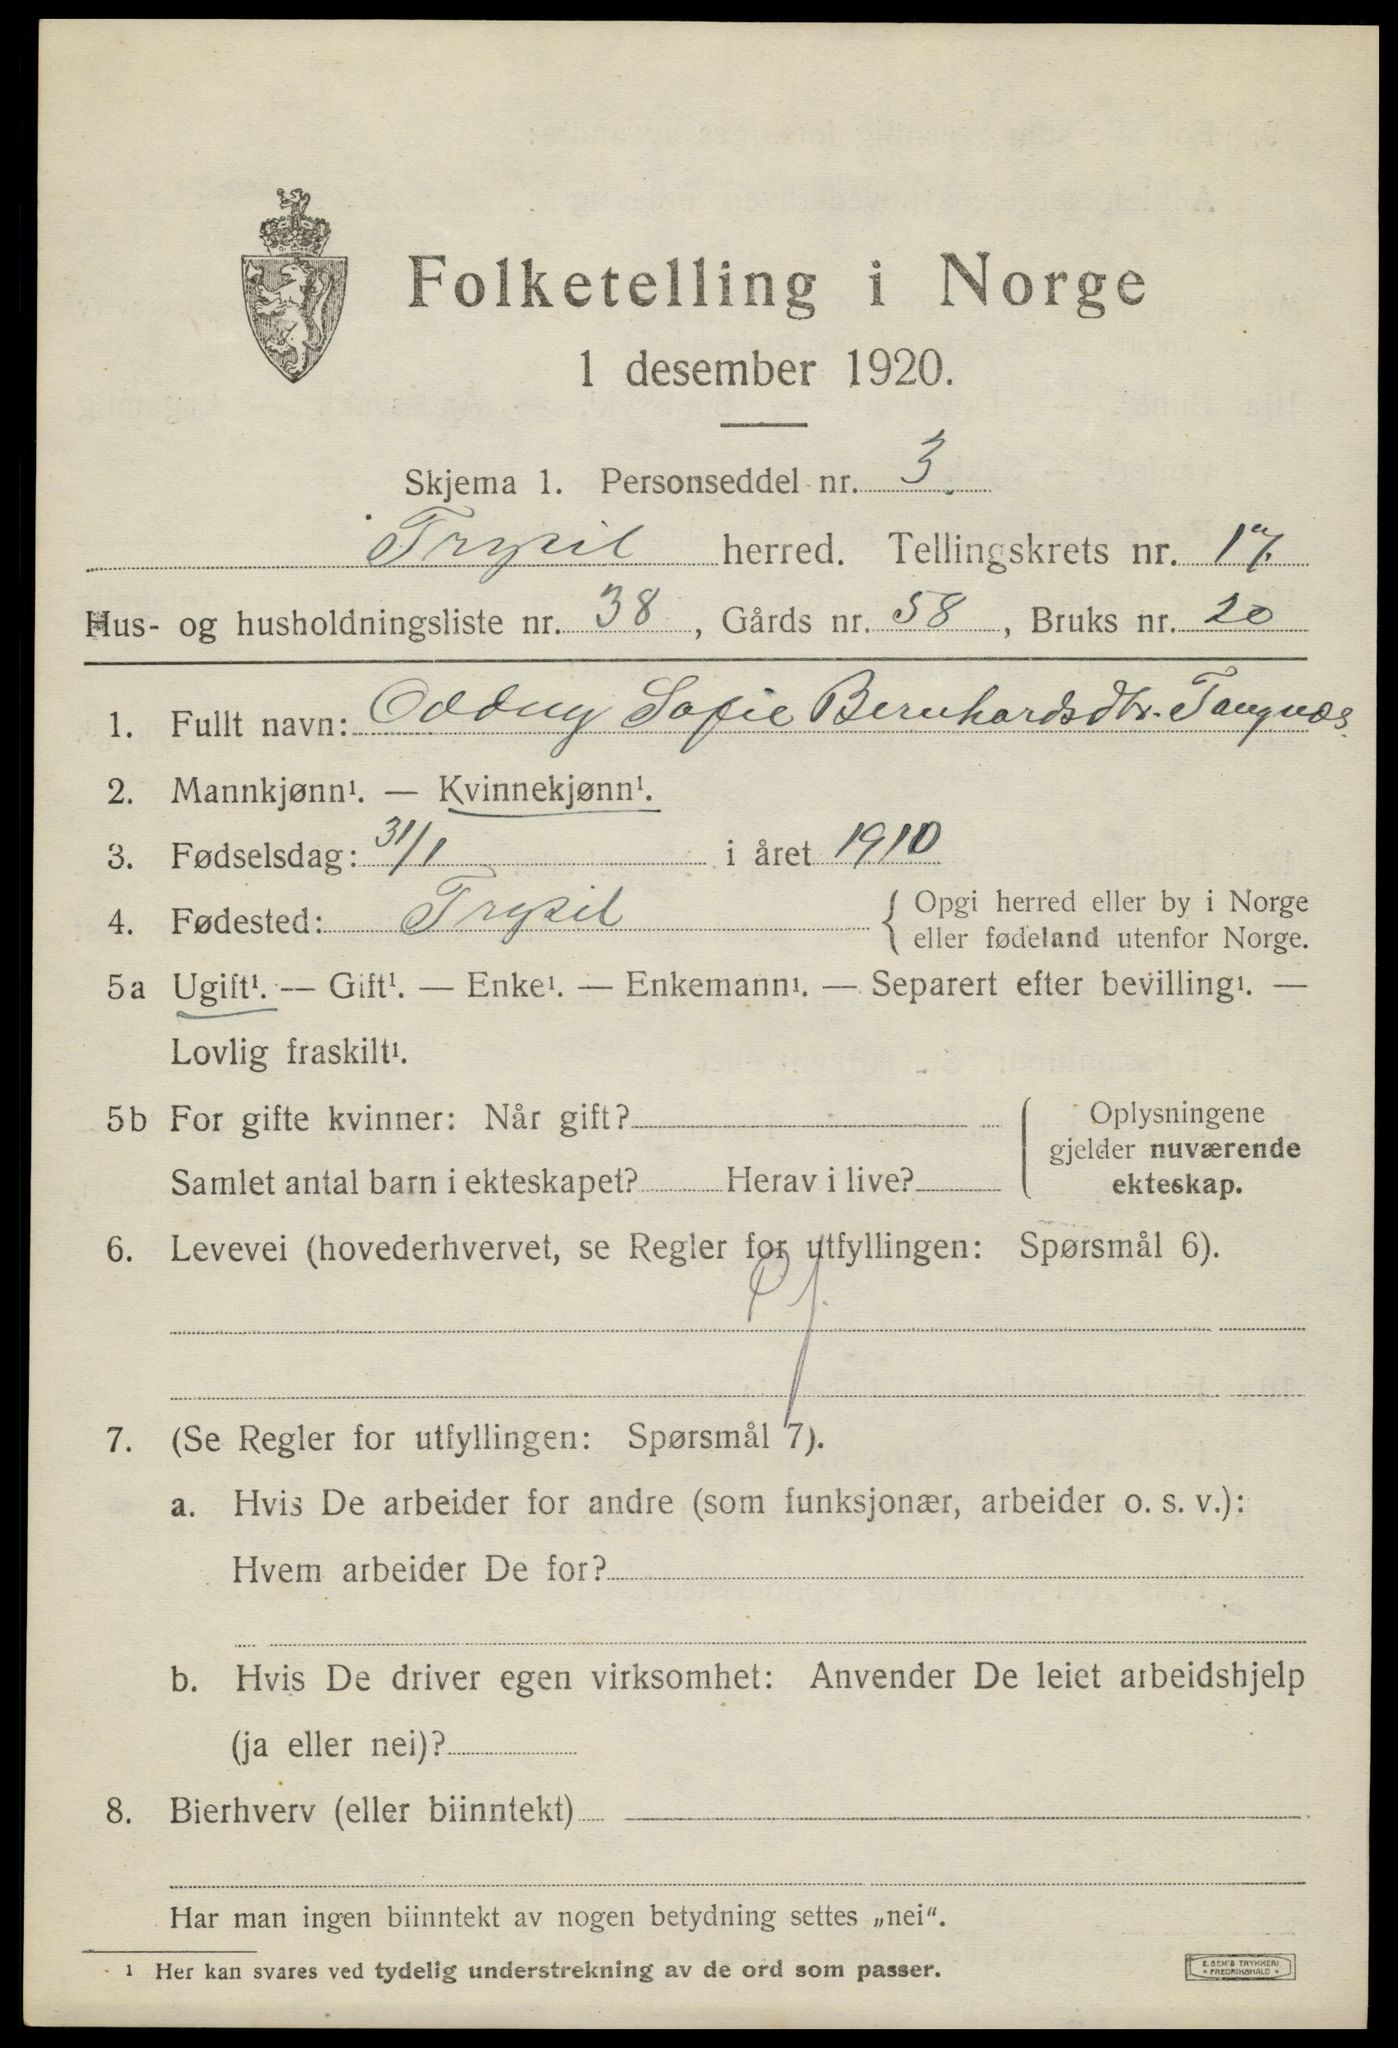 Folketelling i Norge
1 desember 1920.
Skjema 1. Personseddel nr. 3.
Trysil herred. Tellingskrets nr. 17.
Hus- og husholdningsliste nr. 38, Gårds nr. 58, Bruks nr. 20
1. Fullt navn: Oddny Sofie Bernhardsdtr. Tangnæs.
2. Mannkjønn¹. — Kvinnekjønn¹.
3. Fødselsdag: 31/1 i året 1910
4. Fødested: Trysil { Opgi herred eller by i Norge
eller fødeland utenfor Norge.
5a Ugift¹. — Gift¹. — Enke¹. — Enkemann¹. — Separert efter bevilling¹. —
Lovlig fraskilt¹.
5b For gifte kvinner: Når gift?
Samlet antal barn i ekteskapet? Herav i live?
Oplysningene
gjelder nuværende
ekteskap.
6. Levevei (hovederhvervet, se Regler for utfyllingen: Spørsmål 6).
7. (Se Regler for utfyllingen: Spørsmål 7).
a. Hvis De arbeider for andre (som funksjonær, arbeider o. s. v.):
Hvem arbeider De for?
b. Hvis De driver egen virksomhet: Anvender De leiet arbeidshjelp
(ja eller nei)?
8. Bierhverv (eller biinntekt)
Har man ingen biinntekt av nogen betydning settes „nei“.
¹ Her kan svares ved tydelig understrekning av de ord som passer.
E. SEM'S TRYKKERI
* FREDRIKSHALD *